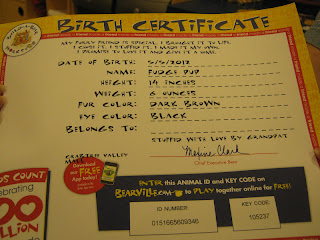 BUILD-A-BEAR
BIRTH CERTIFICATE
MY FURRY FRIEND IS SPECIAL. I BROUGHT IT TO LIFE
I CHOSE IT, I STUFFED IT, I MADE IT MY OWN
I PROMISE TO LOVE IT AND GIVE IT A HOME.
DATE OF BIRTH: 5/5/2012
NAME: FUDGE PUP
HEIGHT: 14 INCHES
WEIGHT: 6 OUNCES
FUR COLOR: DARK BROWN
EYE COLOR: BLACK
BELONGS TO:
STUFFED WITH LOVE BY GRANDPAT
VALLEY
Maxine Clark
Chief Executive Bear
Download
our FREE
App today!
DS COUNT
ebrating
00
LLION
ENTER this ANIMAL ID and KEY CODE on
BEARVILLE.com to PLAY together online for FREE!
ID NUMBER:
0151665609346
KEY CODE:
105237